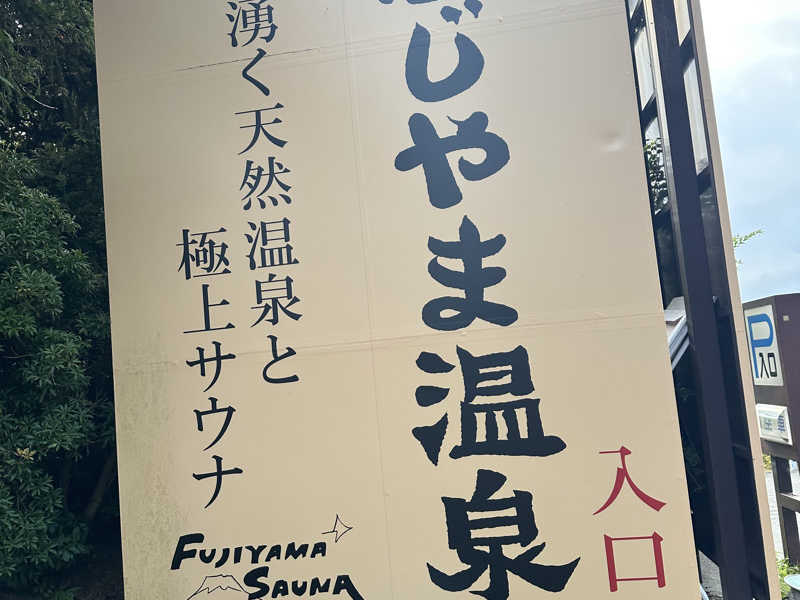 じやま温泉
湧く天然温泉と
極上サウナ
入口
FUJIYAMA
SAUNA
P
入口